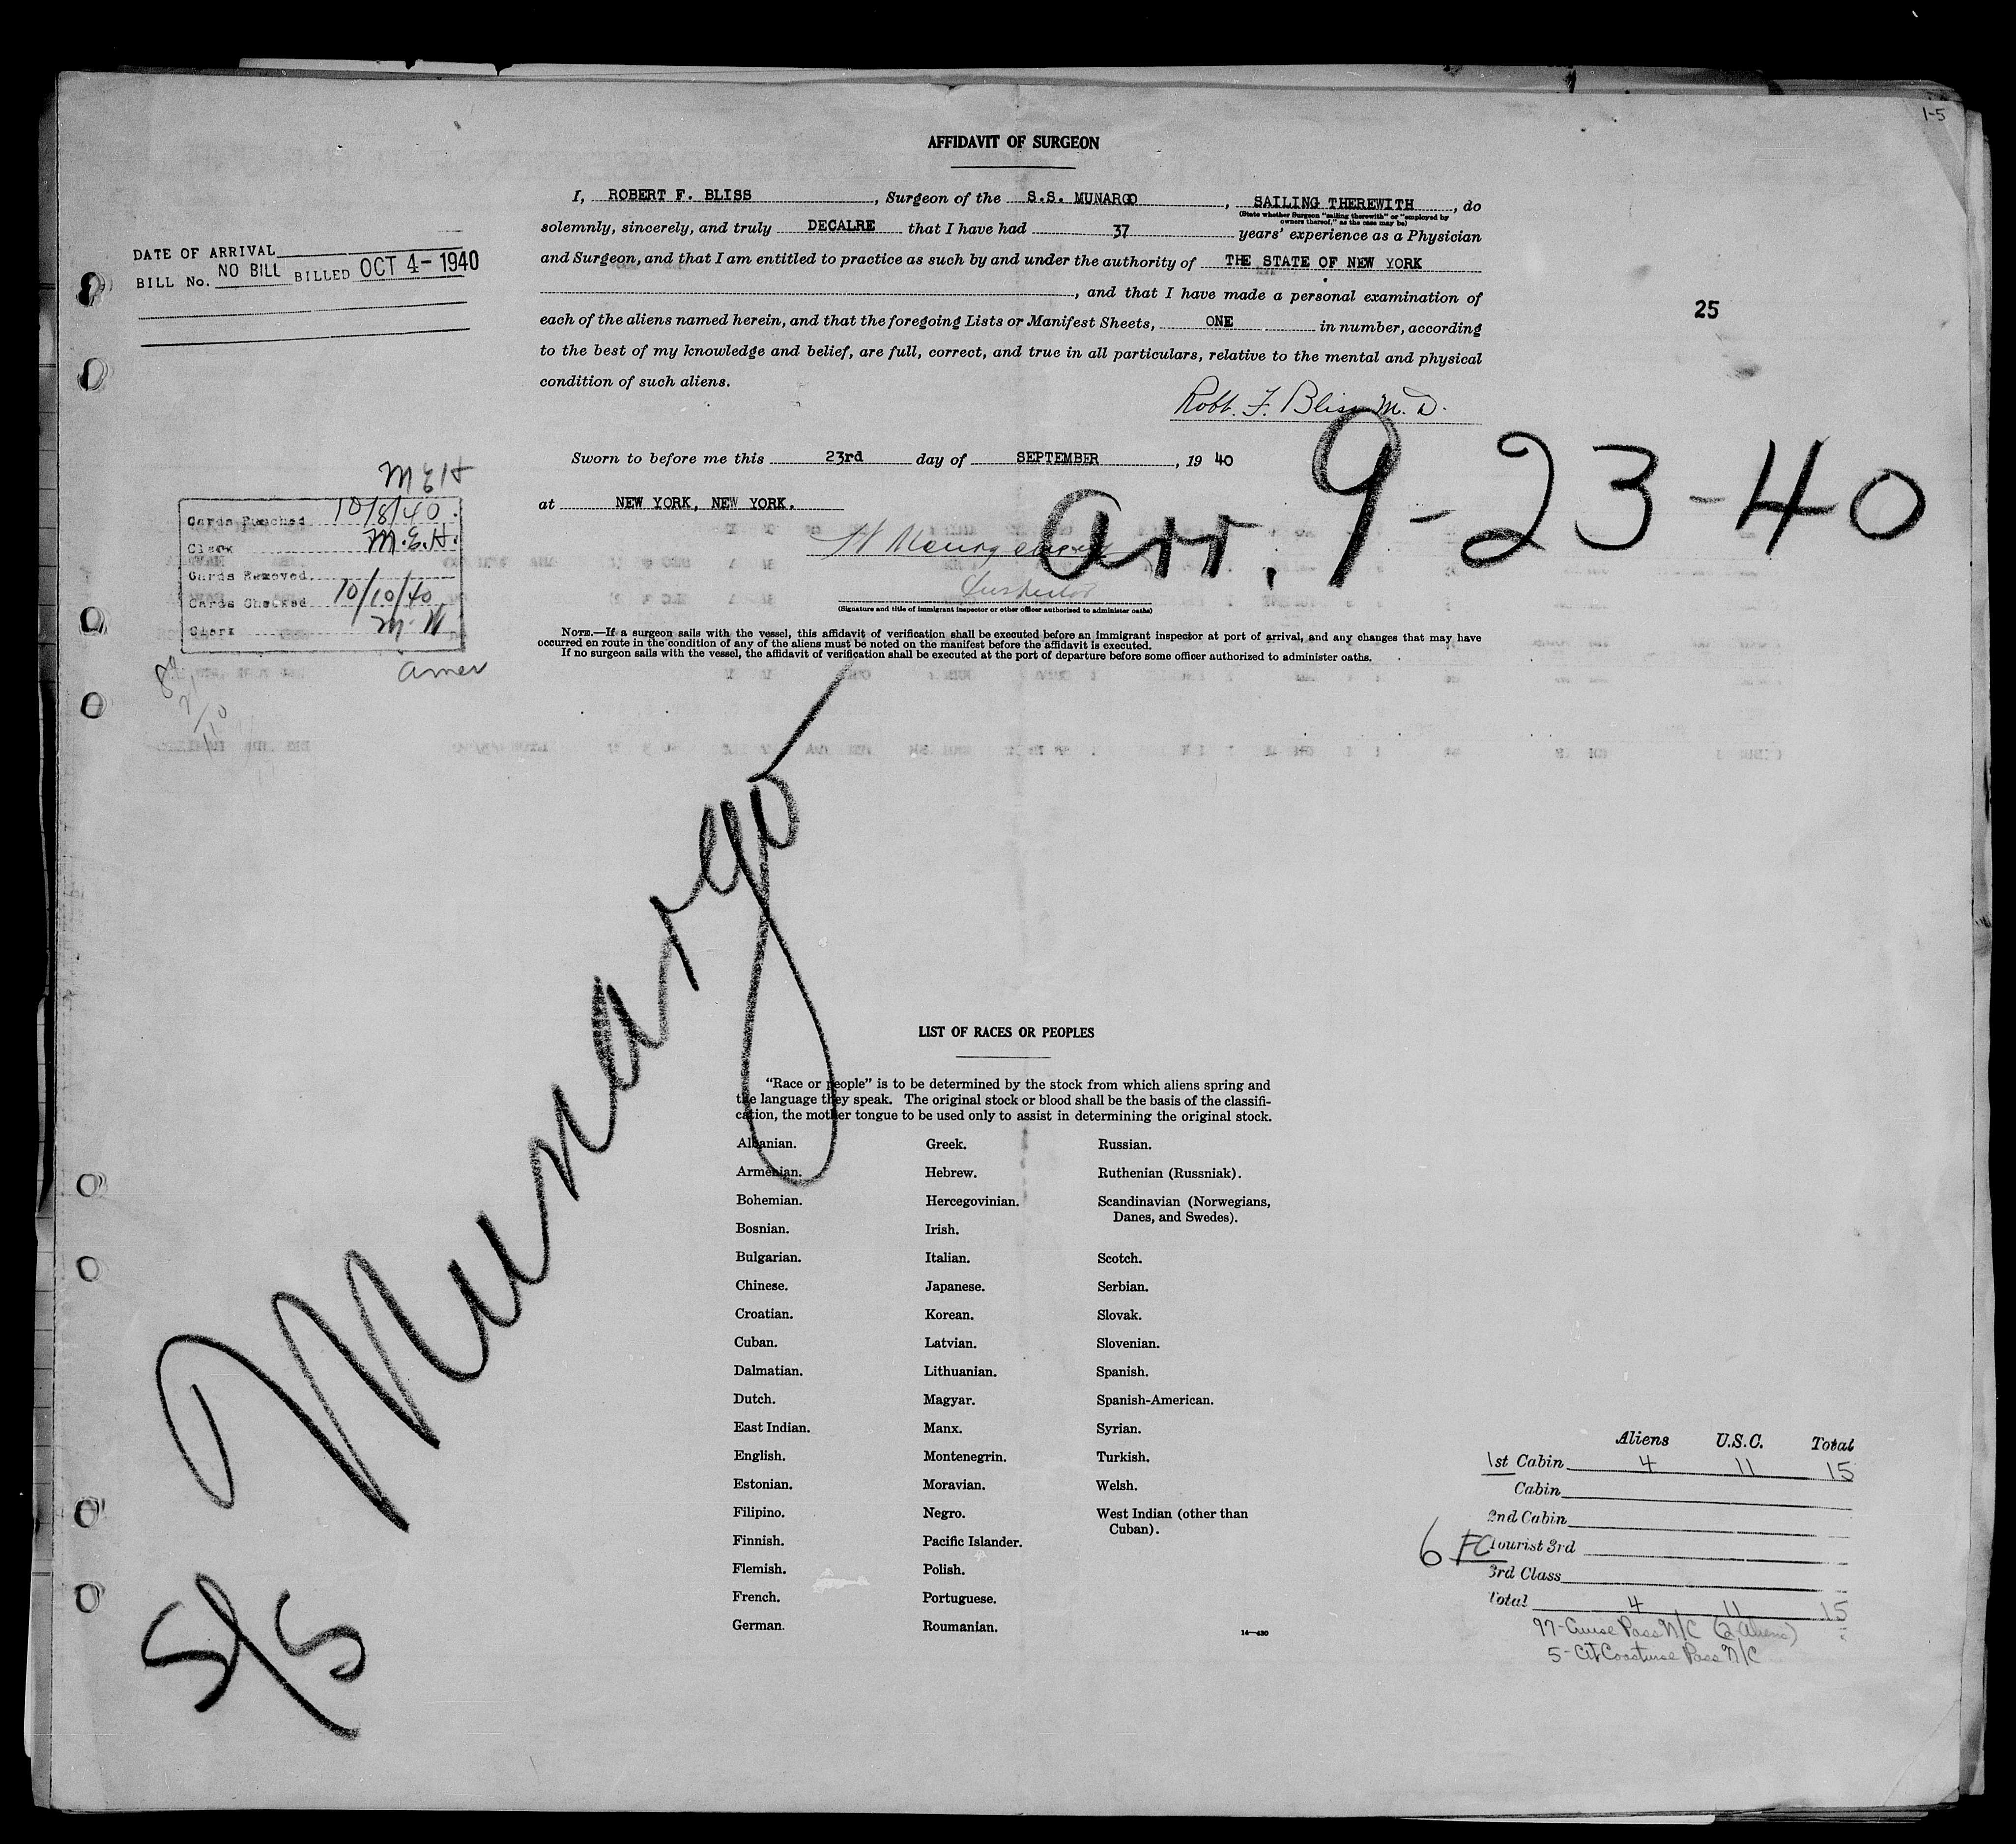 1-5
AFFIDAVIT OF SURGEON
I, ROBERT F. BLISS, Surgeon of the S.S. MUNARGO, SAILING THEREWITH, do
(State whether Surgeon "sailing therewith" or "employed by
owners thereof," as the case may be)
solemnly, sincerely, and truly DECALRE that I have had 37 years' experience as a Physician
and Surgeon, and that I am entitled to practice as such by and under the authority of THE STATE OF NEW YORK
, and that I have made a personal examination of
each of the aliens named herein, and that the foregoing Lists or Manifest Sheets, ONE in number, according
to the best of my knowledge and belief, are full, correct, and true in all particulars, relative to the mental and physical
condition of such aliens.
Robt. F. Bliss M.D.
DATE OF ARRIVAL
BILL No. NO BILL BILLED OCT 4-1940
25
Sworn to before me this 23rd day of SEPTEMBER, 19 40
at NEW YORK, NEW YORK.
arr. 9-23-40
Inspector
(Signature and title of immigrant inspector or other officer authorized to administer oaths)
NOTE.—If a surgeon sails with the vessel, this affidavit of verification shall be executed before an immigrant inspector at port of arrival, and any changes that may have
occurred en route in the condition of any of the aliens must be noted on the manifest before the affidavit is executed.
If no surgeon sails with the vessel, the affidavit of verification shall be executed at the port of departure before some officer authorized to administer oaths.
M E H
Cards Punched 10/8/40.
Clerk M.E.H.
Cards Removed
Cards Checked 10/10/40
Clerk M.W
amer
S/S Munargo
LIST OF RACES OR PEOPLES
"Race or people" is to be determined by the stock from which aliens spring and
the language they speak. The original stock or blood shall be the basis of the classifi-
cation, the mother tongue to be used only to assist in determining the original stock.
Albanian.
Armenian.
Bohemian.
Bosnian.
Bulgarian.
Chinese.
Croatian.
Cuban.
Dalmatian.
Dutch.
East Indian.
English.
Estonian.
Filipino.
Finnish.
Flemish.
French.
German.
Greek.
Hebrew.
Hercegovinian.
Irish.
Italian.
Japanese.
Korean.
Latvian.
Lithuanian.
Magyar.
Manx.
Montenegrin.
Moravian.
Negro.
Pacific Islander.
Polish.
Portuguese.
Roumanian.
Russian.
Ruthenian (Russniak).
Scandinavian (Norwegians,
Danes, and Swedes).
Scotch.
Serbian.
Slovak.
Slovenian.
Spanish.
Spanish-American.
Syrian.
Turkish.
Welsh.
West Indian (other than
Cuban).
14—430
Aliens U.S.C. Total
1st Cabin 4 11 15
Cabin
2nd Cabin
6 FC Tourist 3rd
3rd Class
Total 4 11 15
97-Cruise Pass N/C (2 Aliens)
5-Cit Coastwise Pass N/C